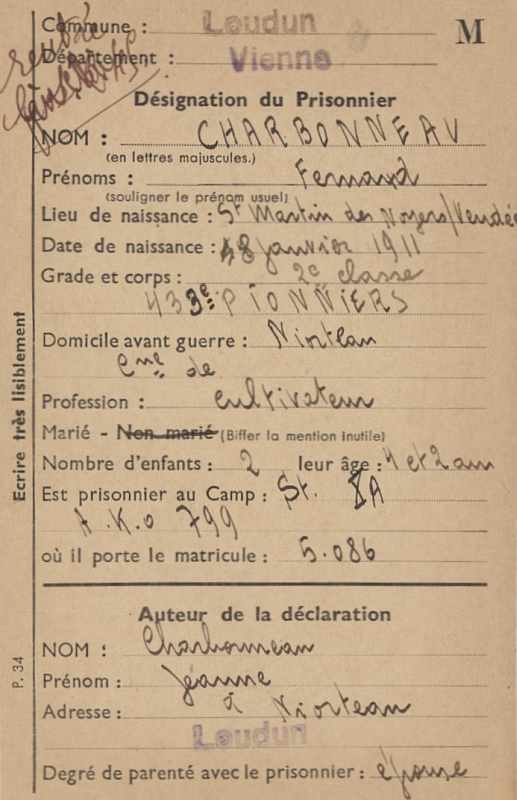 Commune : Loudun
M
Département : Vienne
Désignation du Prisonnier
NOM : CHARBONNEAU
(en lettres majuscules.)
Prénoms : Fernand
(souligner le prénom usuel)
Lieu de naissance : St Martin des Noyers/Vendée
Date de naissance : 18 janvier 1911
Grade et corps : 2e classe
433e PIONNIERS
Domicile avant guerre : Niortlan
Cne de
Profession : cultivateur
Marié - Non marié (Biffer la mention inutile)
Nombre d'enfants : 2 leur âge : 4 et 2 ans
Est prisonnier au Camp : St. XA
A.K.O 799
où il porte le matricule : 5.086
Auteur de la déclaration
NOM : Charbonneau
Prénom : Jeanne
Adresse : à Niorteau
Loudun
Degré de parenté avec le prisonnier : épouse
Ecrire très lisiblement
P. 34